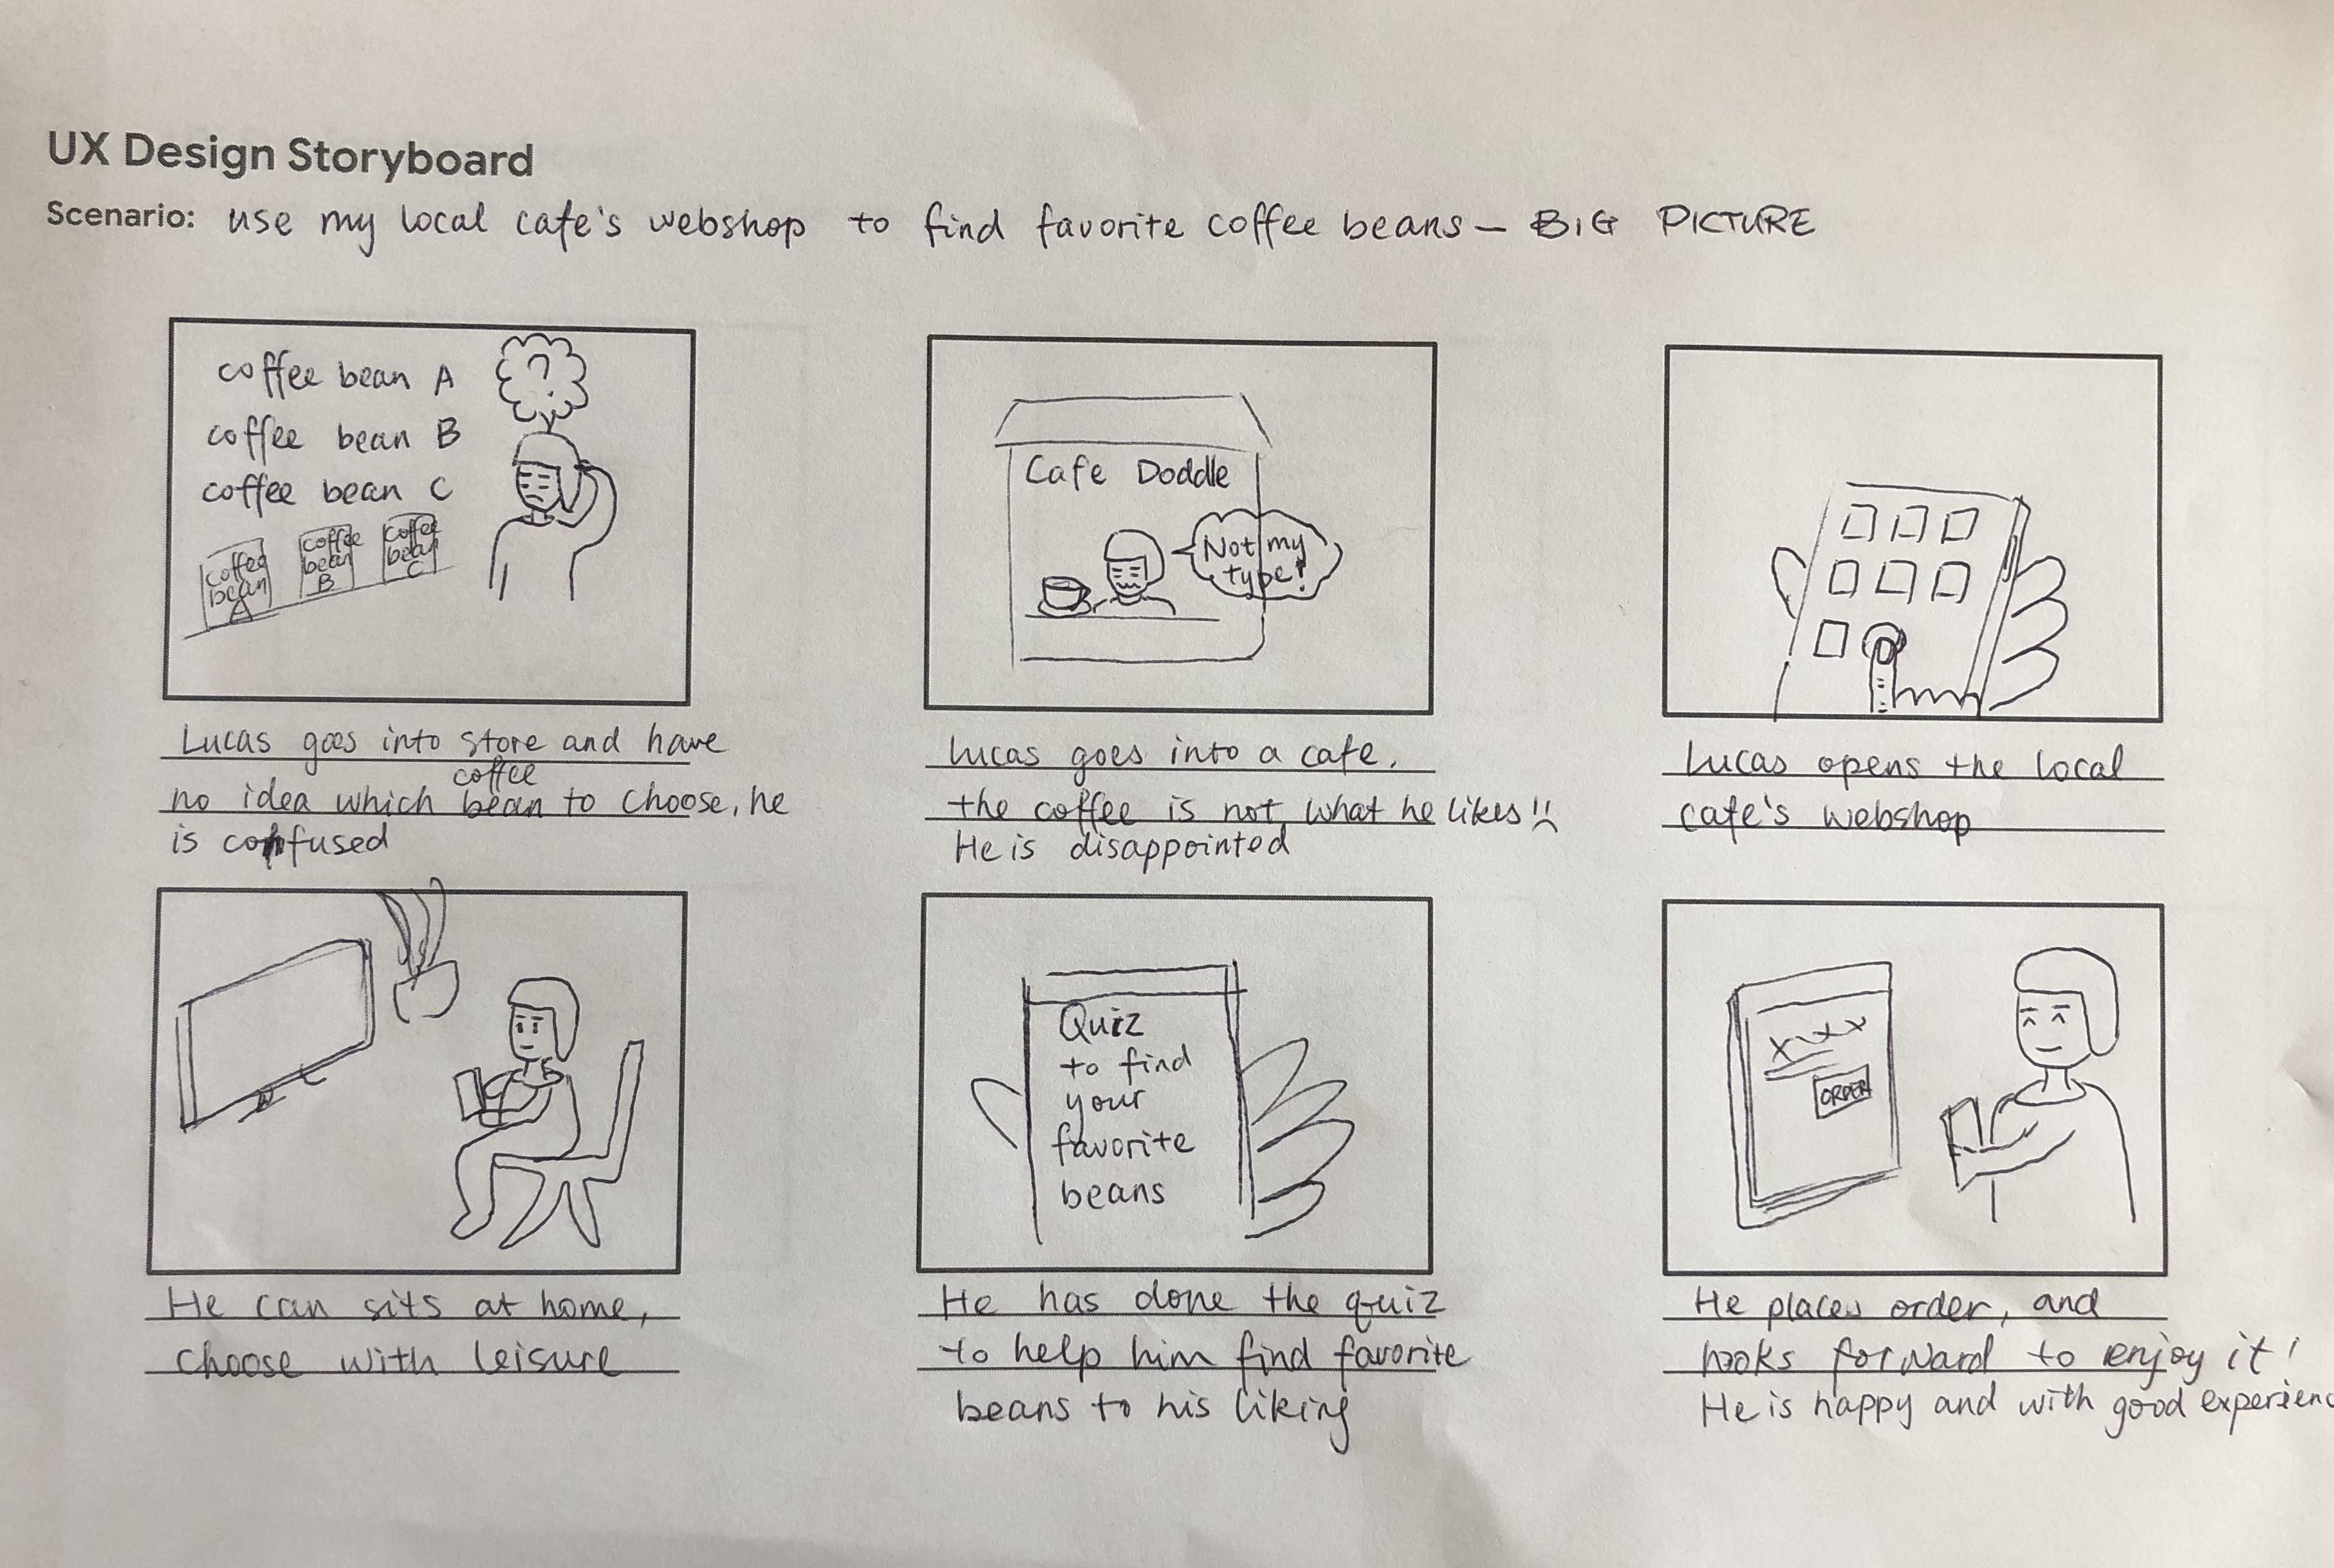 UX Design Storyboard
Scenario: use my local cafe's webshop to find favorite coffee beans — BIG PICTURE
coffee bean A
coffee bean B
coffee bean C
?
coffee bean A
coffee bean B
coffee bean C
Lucas goes into store and have
no idea which coffee bean to choose, he
is confused
Cafe Doddle
Not my
type!
Lucas goes into a cafe.
the coffee is not what he likes!!
He is disappointed
Lucas opens the local
cafe's webshop
He can sits at home,
choose with leisure
Quiz
to find
your
favorite
beans
He has done the quiz
to help him find favorite
beans to his liking
XXXX
ORDER
He places order, and
looks forward to enjoy it!
He is happy and with good experienc